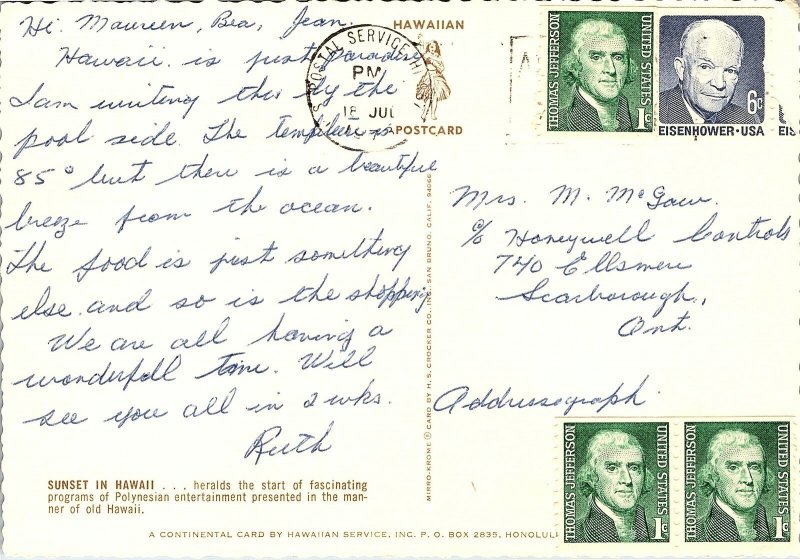 Hi. Maureen, Bea, Jean.
Hawaii is just paradise
I am writing this by the
pool side. The temp is
85° but there is a beautiful
breeze from the ocean.
The food is just something
else and so is the shopping
We are all having a
wonderfull time. Will
see you all in 2 wks.
Ruth
SUNSET IN HAWAII . . . heralds the start of fascinating
programs of Polynesian entertainment presented in the man-
ner of old Hawaii.
A CONTINENTAL CARD BY HAWAIIAN SERVICE, INC. P. O. BOX 2835, HONOLUL
MIRRO-KROME® CARD BY H. S. CROCKER CO., INC. SAN BRUNO, CALIF. 94066
HAWAIIAN
POSTCARD
POSTAL SERVICE HI
PM
18 JUL
THOMAS JEFFERSON
UNITED STATES
1c
6c
EISENHOWER·USA
EIS
Mrs. M. McGaw
c/o Honeywell Controls
740 Ellsmere
Scarborough,
Ont.
Addressograph.
THOMAS JEFFERSON
UNITED STATES
1c
THOMAS JEFFERSON
UNITED STATES
1c